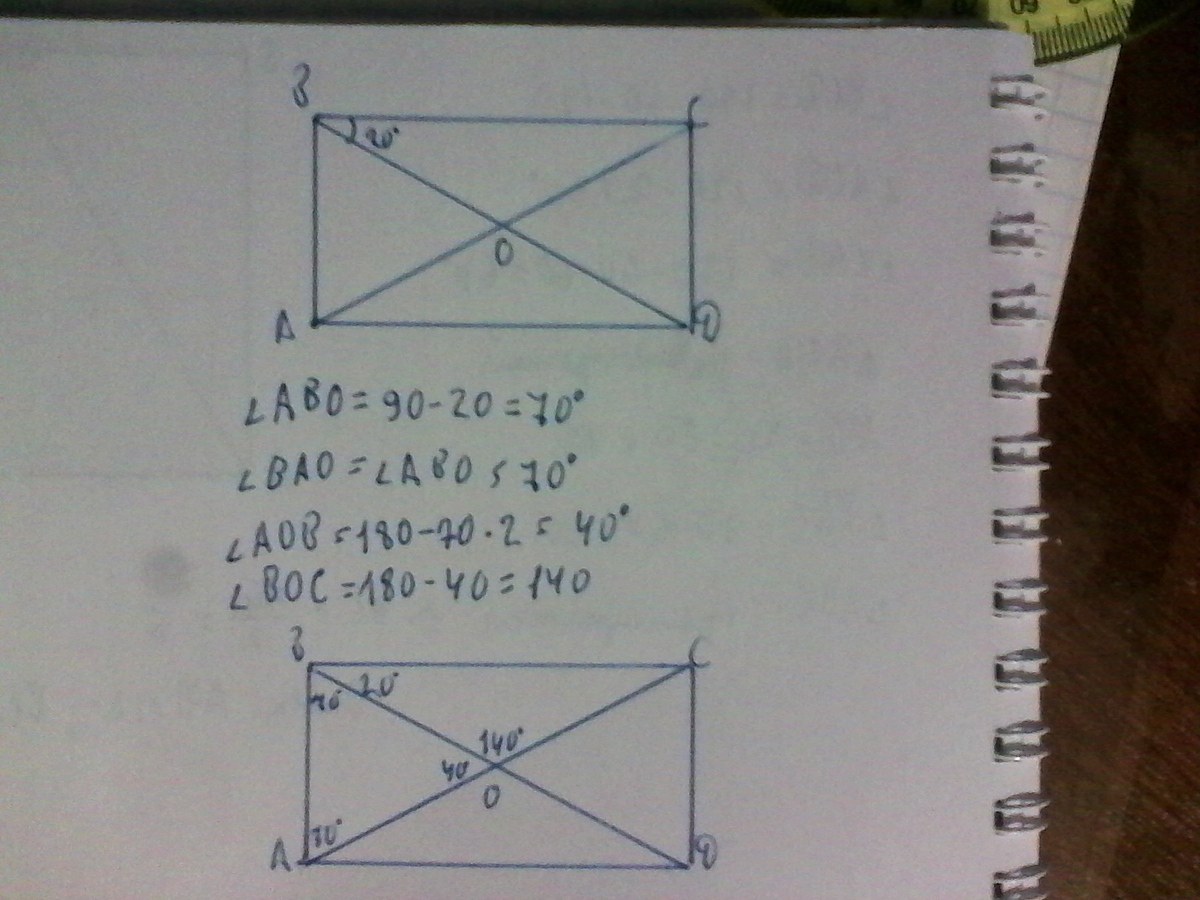 B C
20°
O
A D
∠ABO = 90 - 20 = 70°
∠BAO = ∠ABO = 70°
∠AOB = 180 - 70 · 2 = 40°
∠BOC = 180 - 40 = 140
B C
70° 20°
140°
40
O
70°
A D